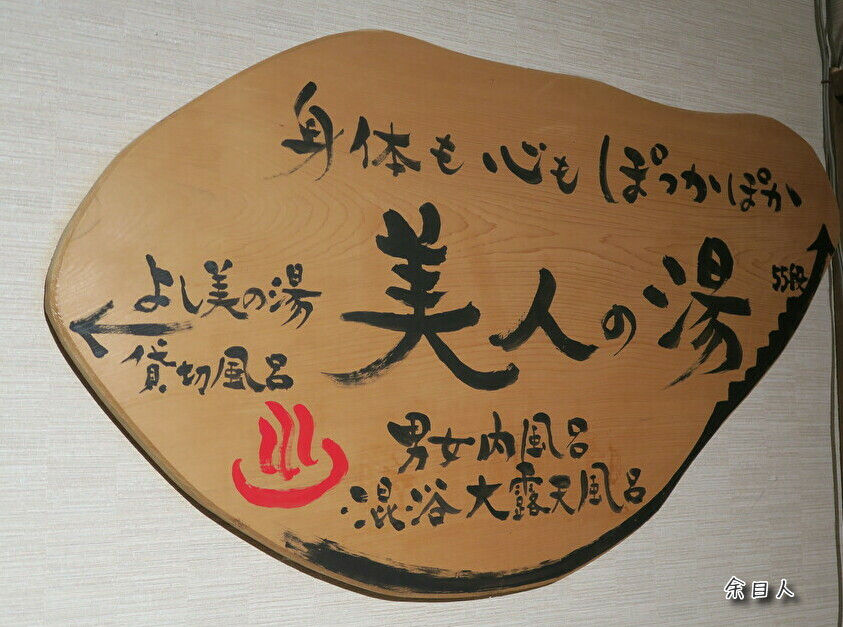 身体も心もぽっかぽか
美人の湯
55段
よし美の湯
貸切風呂
男女内風呂
混浴大露天風呂
余目人